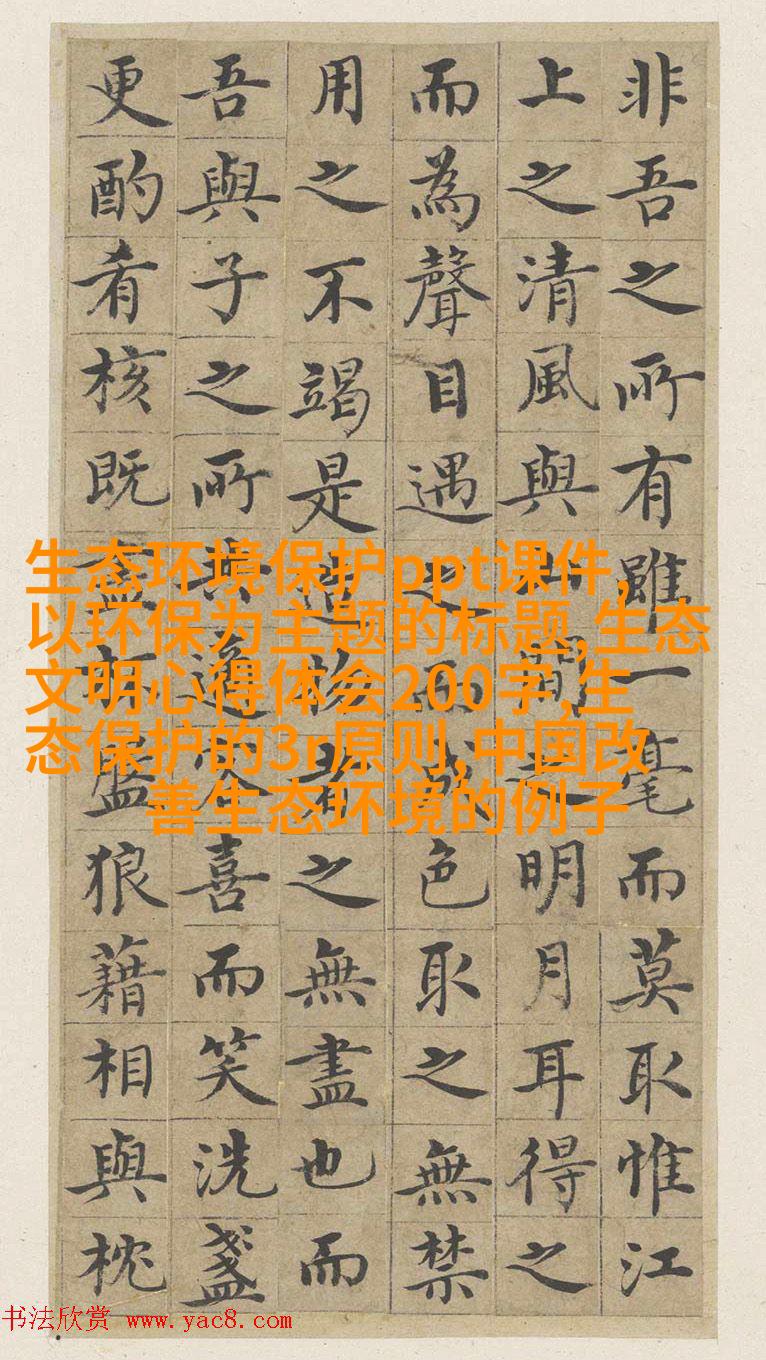 非吾之所有雖一毫而莫取惟江
上之清風與山間之明月耳得之
而為聲目遇之而成色取之無禁
用之不竭是造物者之無盡也而
吾與子之所共適客喜而笑洗盞
更酌肴核既盡杯盤狼藉相與枕
生态环境保护ppt课件,
以环保为主题的标题,生态
文明心得体会200字,生
态保护的3r原则,中国改
善生态环境的例子
书法欣赏 www.yac8.com